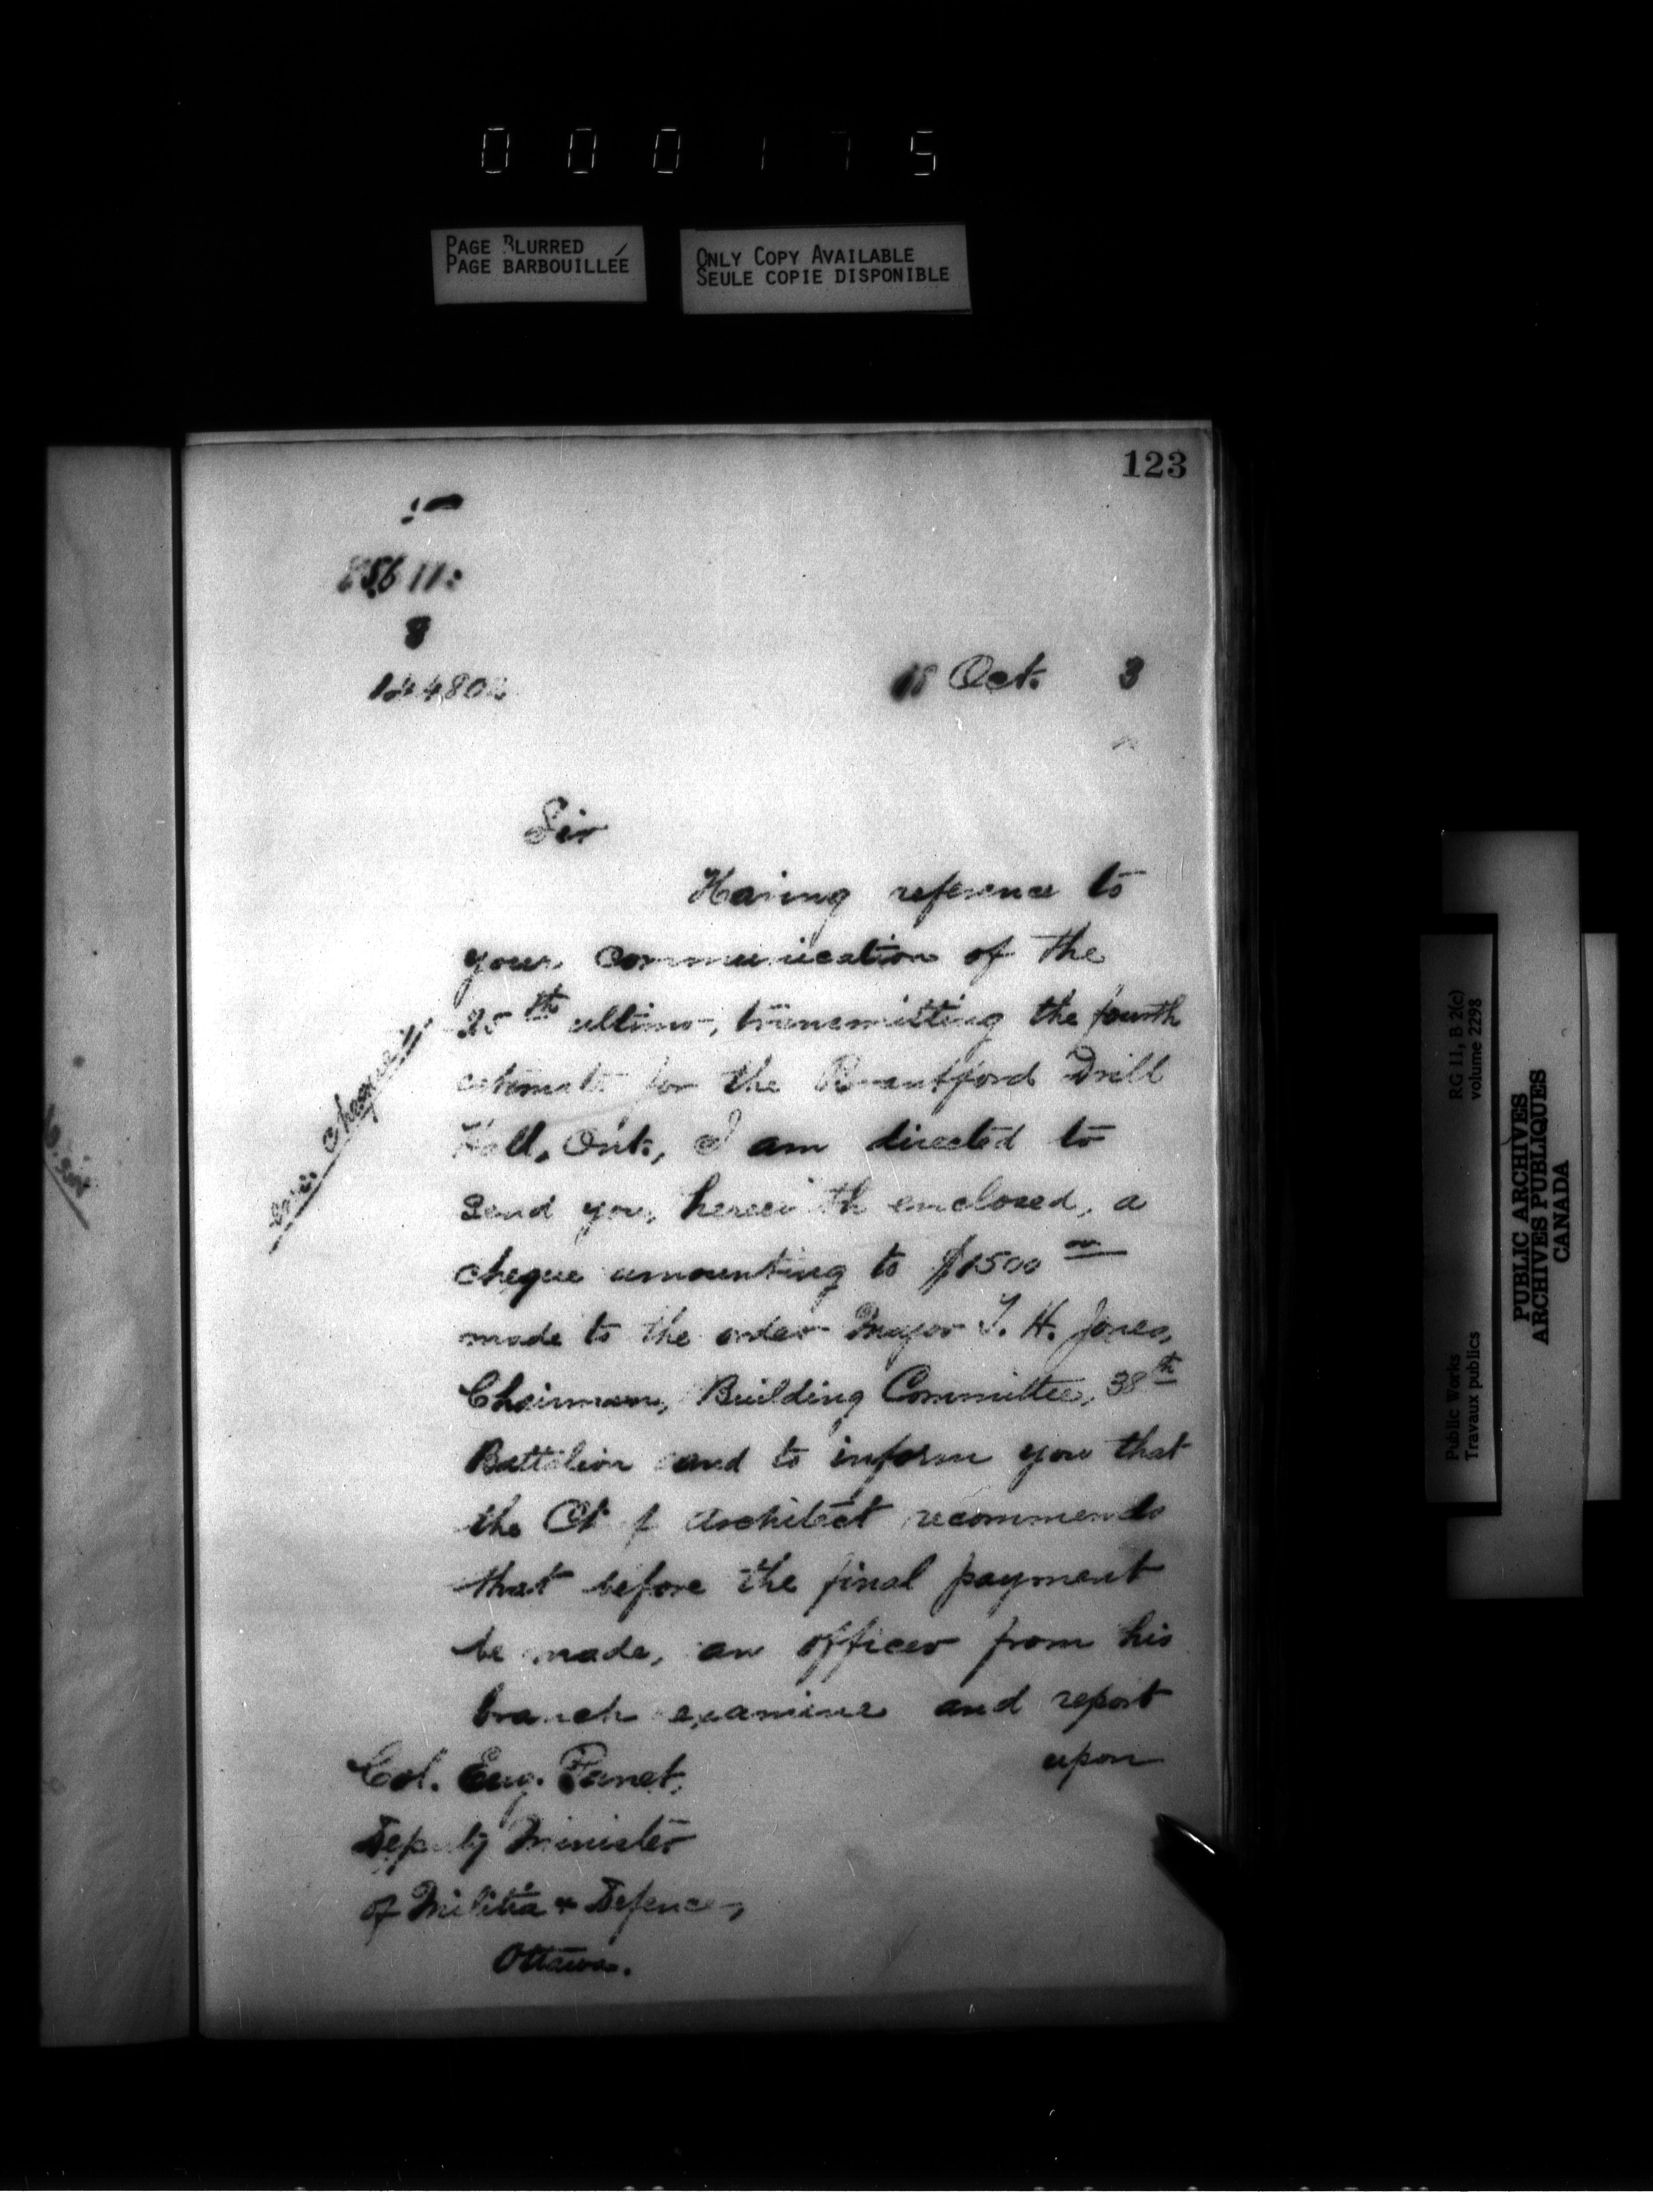 0 0 0 1 7 5
PAGE BLURRED
PAGE BARBOUILLÉE
ONLY COPY AVAILABLE
SEULE COPIE DISPONIBLE
123
8
18 Oct. 3
Sir
Having reference to
your communication of the
25th ultimo, transmitting the fourth
estimate for the Brantford Drill
Hall, Ont., I am directed to
send you, herewith enclosed, a
cheque amounting to $1500
made to the order Major T. H. Jones,
Chairman, Building Committee, 38th
Battalion and to inform you that
the Ch f Architect recommends
that before the final payment
be made, an officer from his
branch examine and report
upon
Col. Eug. Panet,
Deputy Minister
of Militia & Defence,
Ottawa.
cheque
RG 11, B 2(c)
volume 2298
Public Works
Travaux publics
PUBLIC ARCHIVES
ARCHIVES PUBLIQUES
CANADA